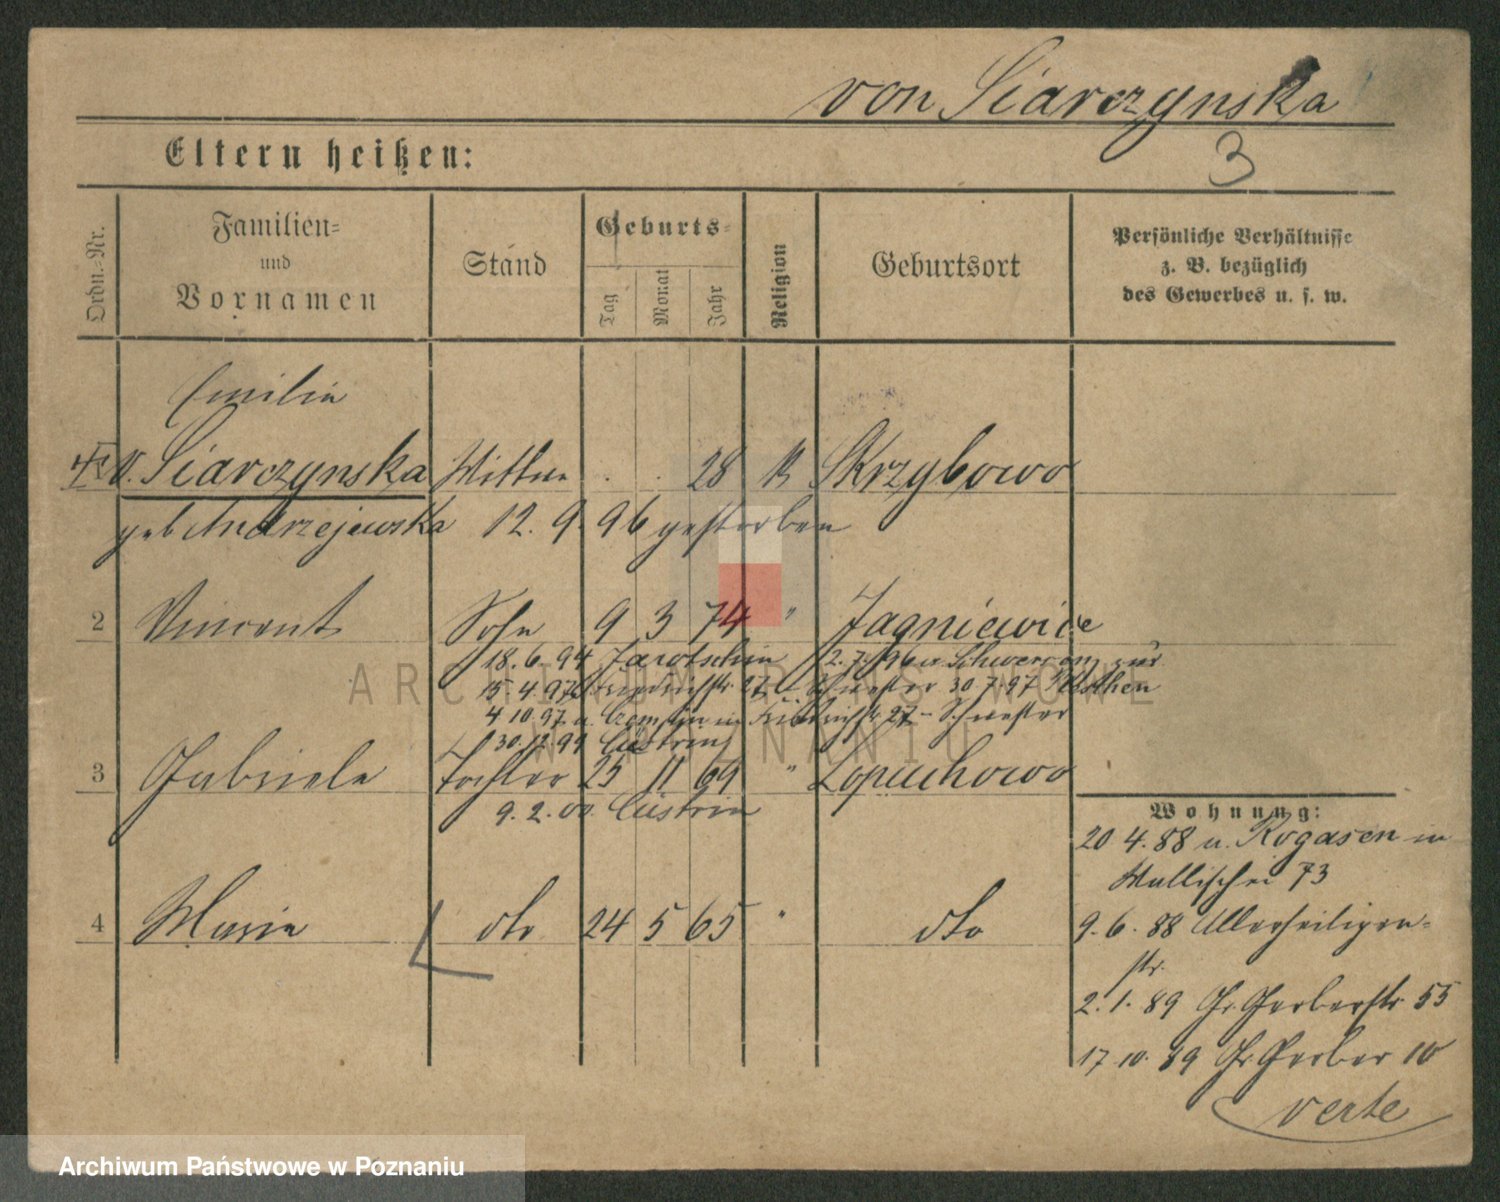 von Siarczynska
3
Eltern heißen:
Ordn.-Nr.
Familien-
und
Vornamen
Stand
Geburts-
Tag
Monat
Jahr
Religion
Geburtsort
Persönliche Verhältnisse
z. B. bezüglich
des Gewerbes u. s. w.
Emilie
v. Siarczynska Wittwe 28 K Skrzybowo
geb Andrzejewska 12. 9. 96 gestorben
2 Vincent Sohn 9 3 74 " Jagniewice
18. 6. 94 Jarotschin 2. 7. 96 v. Schwerenz zur
15. 4. 97 Friedrichstr. 27 Schwester 30 7. 97
4 10. 97 v. in Friedrichstr. 27 - Schwester
30. 12. 99 Cüstrin
3 Gabriele Tochter 25 11 69 " Lopuchowo
9. 2. 00. Cüstrin
4 Marie dto 24 5 65 " dto
Wohnung:
20 4. 88 v. Rogasen in
Wallischei 73
9. 6. 88 Allerheiligen-
str.
2. 1. 89 Gr. Gerberstr 55
17 10. 89 Gr Gerber 10
verte
ARCHIWUM PAŃSTWOWE
W POZNANIU
Archiwum Państwowe w Poznaniu